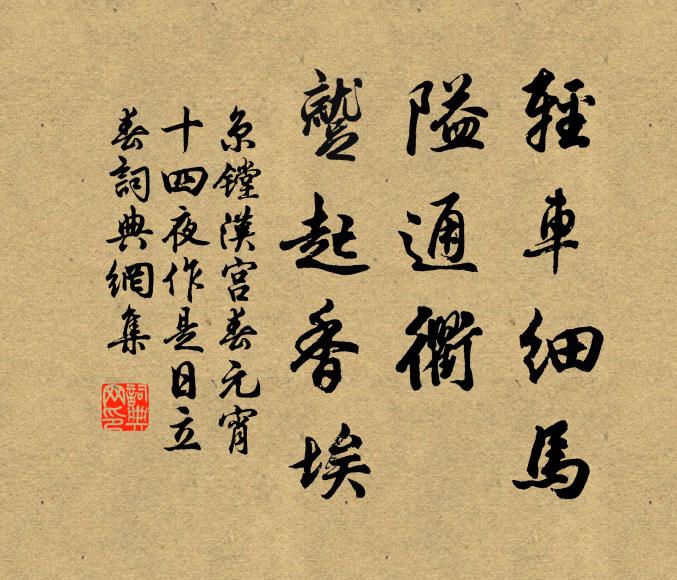 輕車細馬
隘通衢
蹵起香埃
京鏜漢宮春元宵
十四夜作是日立
春詞典網集
詞典
网印